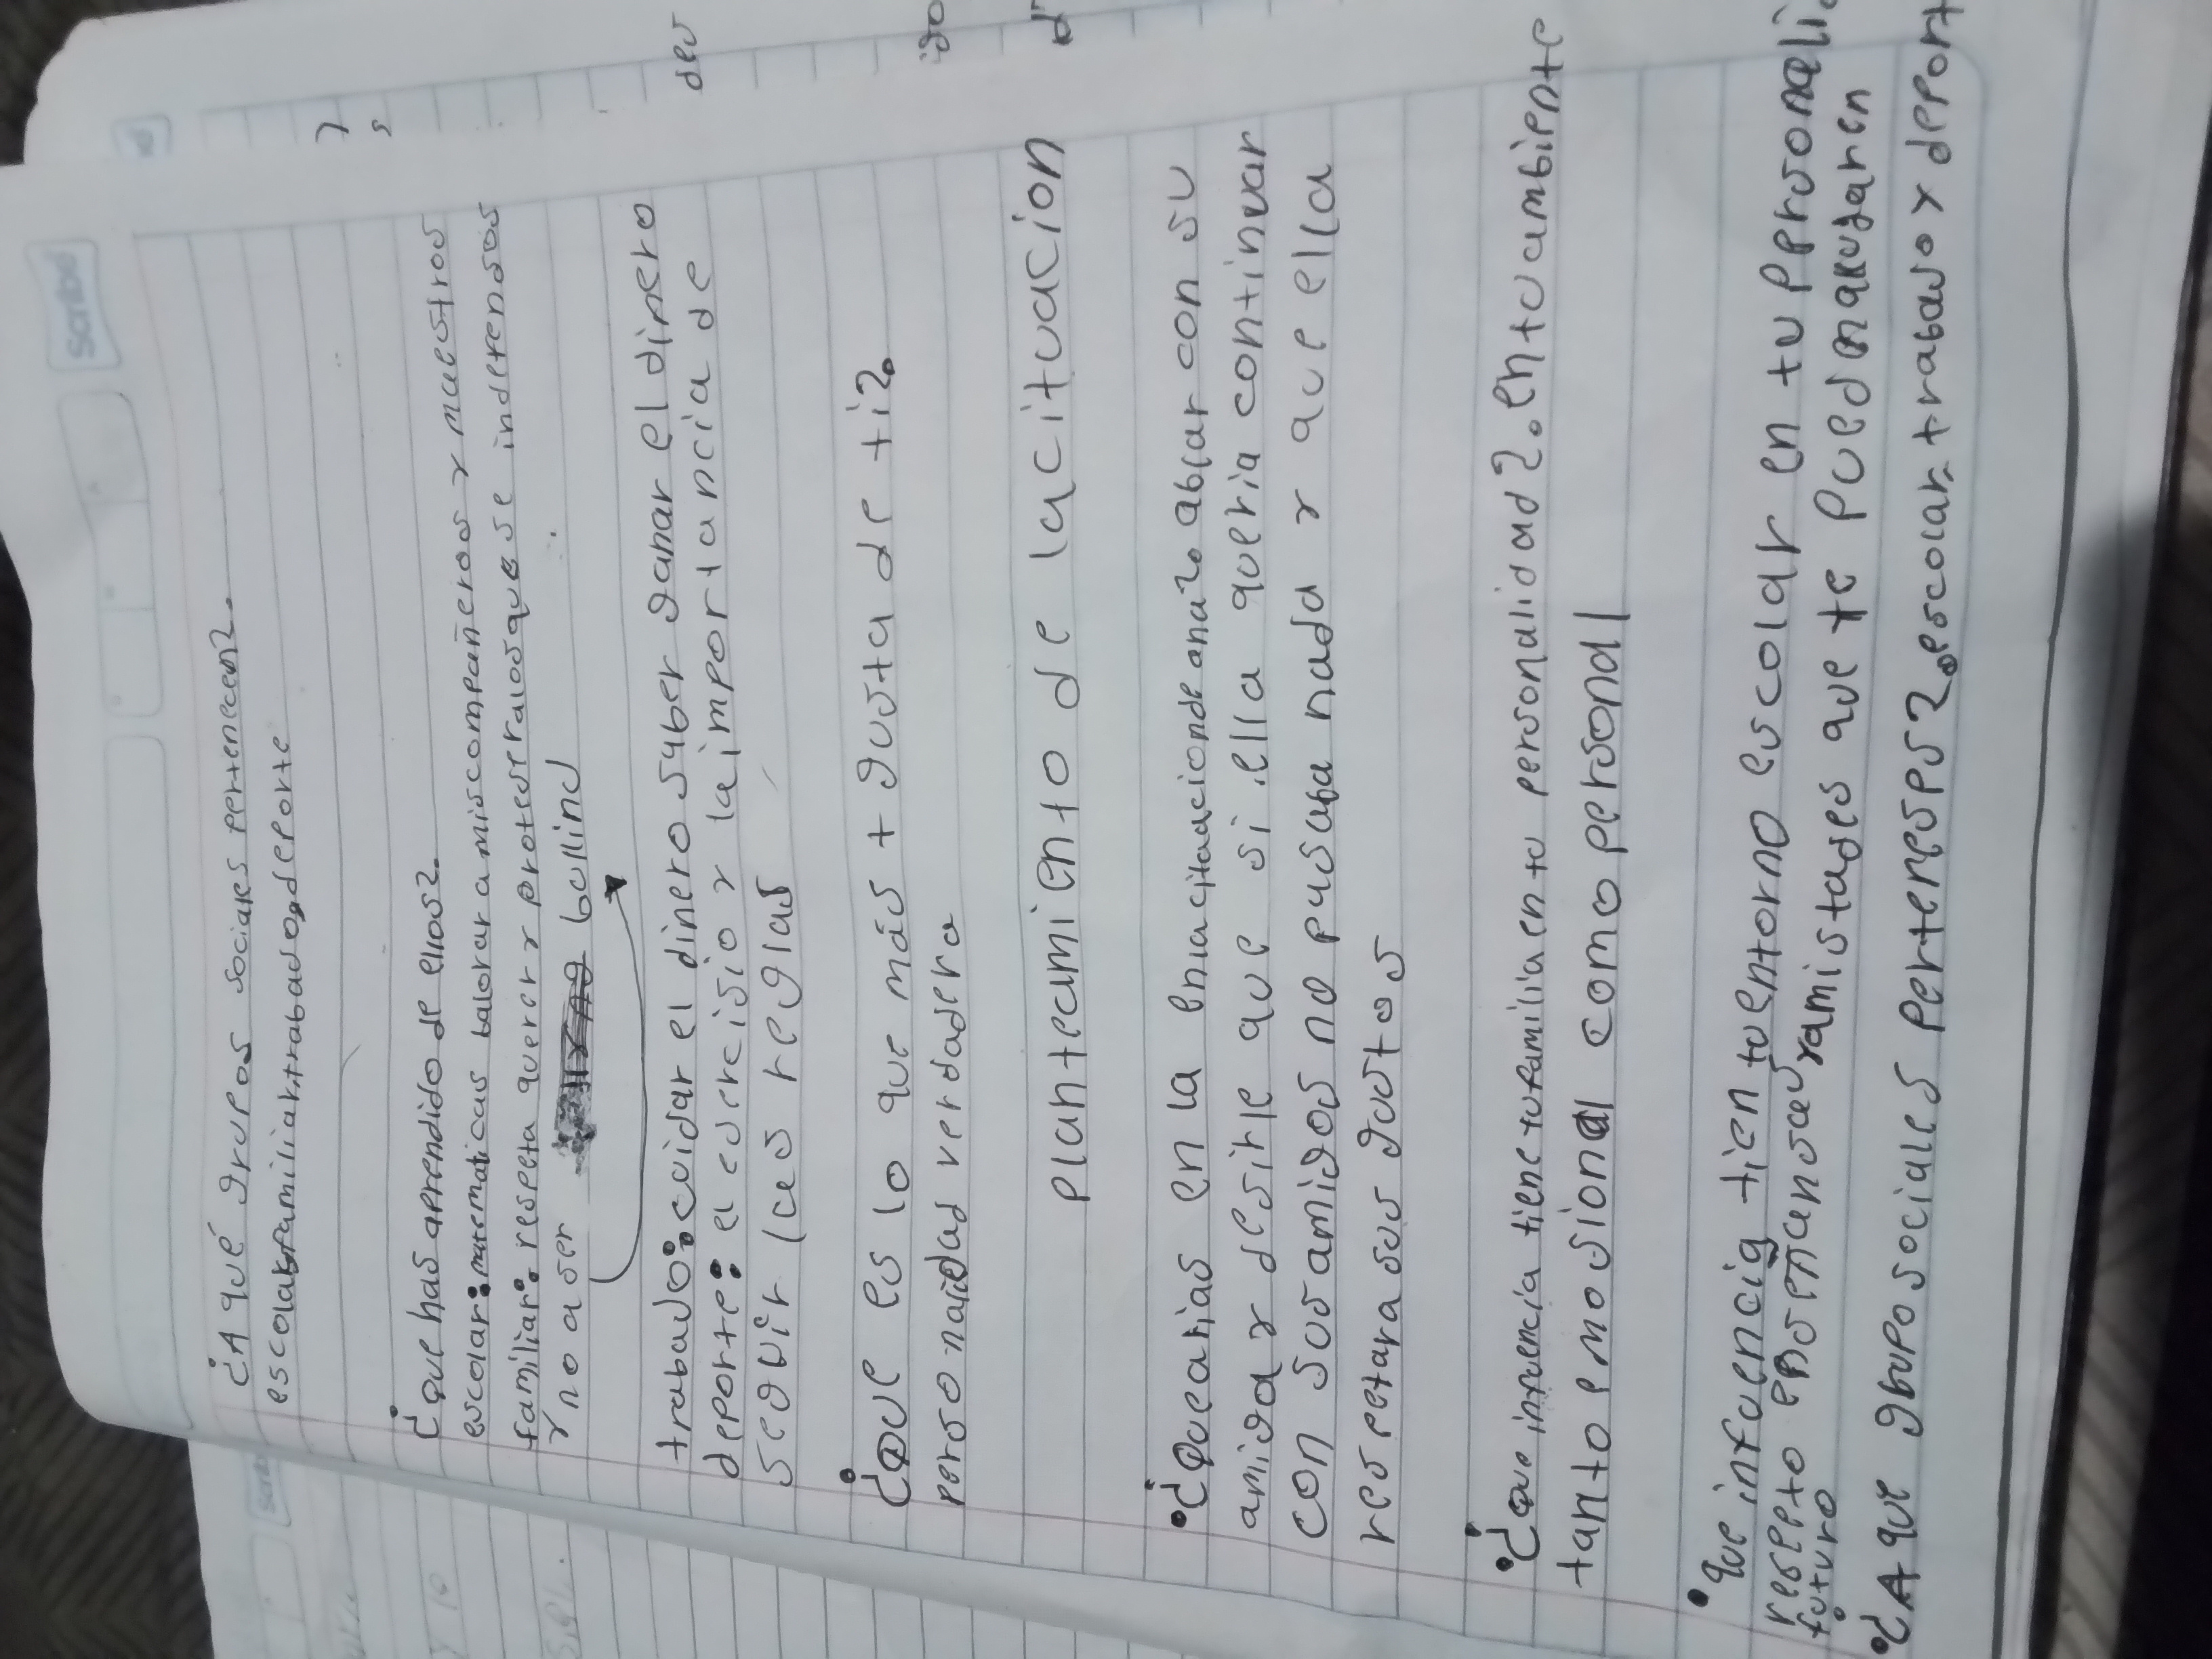 scribe
¿A qué grupos sociales pertenecen?.
escolar, familiar, trabaso, deporte
¿que has aprendido de ellos?.
escolar: matematicas balorar a mis compañeros y maestros
familiar: respeta querer y protester a los que se indefensos
y no a ser bullind
trabaso: cuidar el dinero saber ganar el dinero
deporte: el esercisio y la importancia de
seguir las reglas
¿que es lo que más t gusta de ti?.
personaidad verdadera
planteamiento de la cituacion
• ¿Que arias en la en la citaacion de ana?. ablar con su
amiga y desirle que si ella queria continuar
con sus amigos no pasaba nada y que ella
respetara sus gustos
• ¿que influencia tiene tu familia en tu personalidad?. en tu ambiente
tanto emosional como personal
• que influencia tien tu entorno escolar en tu personali
respeto enseñansas y amistades que te puedan ayudar en
futuro
• ¿A que grupo sociales perteneses?. escolar, trabaso y deport